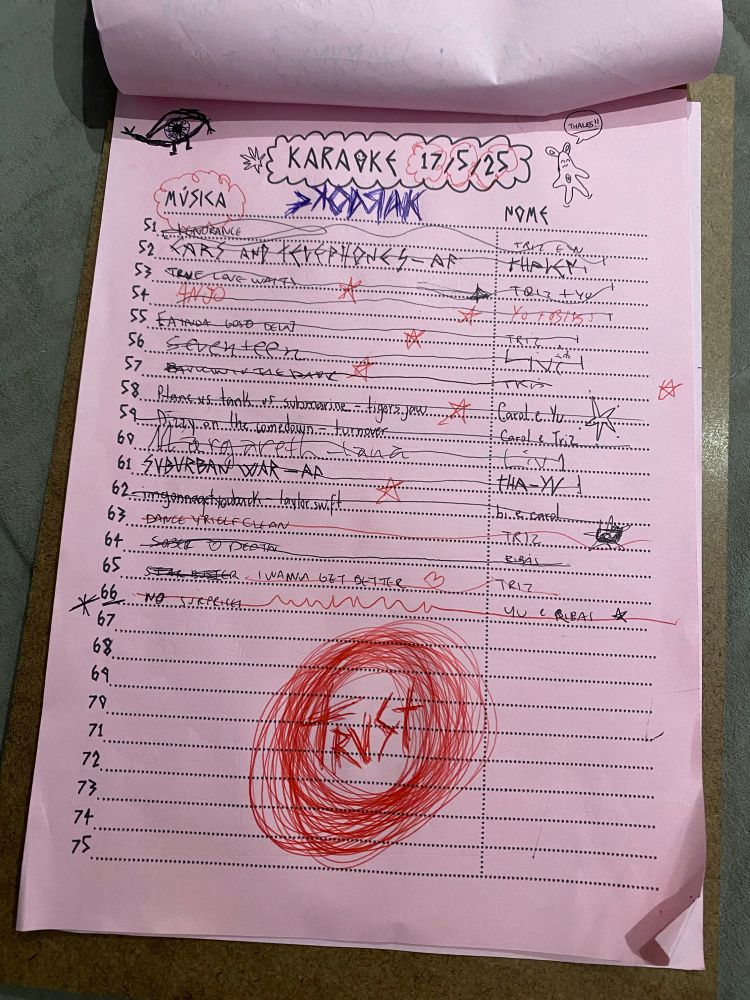 THALES!!
KARAOKE 17/5/25
MÚSICA
NOME
51 IGNORANCE TRIZ
52 CARS AND TELEPHONES - AF
53 TRUE LOVE WAITS TRIZ + YU
54 ANJO YU +
55 TRIZ
56 Seventeen LIV
57 DANCING IN THE DARK TRIZ
58 Plane vs tank vs submarine - tigers jaw Carol e Yu
59 Dizzy on the comedown - turnover Carol e Triz
60 Margareth tana Liv
61 SUBURBAN WAR - AF THA-YU
62 imgonnagetyouback - taylor swift bi e carol
63 DANCE YRSELF CLEAN TRIZ
64 SOBER DEATH BIBAS
65 I WANNA GET BETTER TRIZ
66 NO SURPRISES YU E BIBAS
67
68
69
70
71
72
73
74
75
TRUST